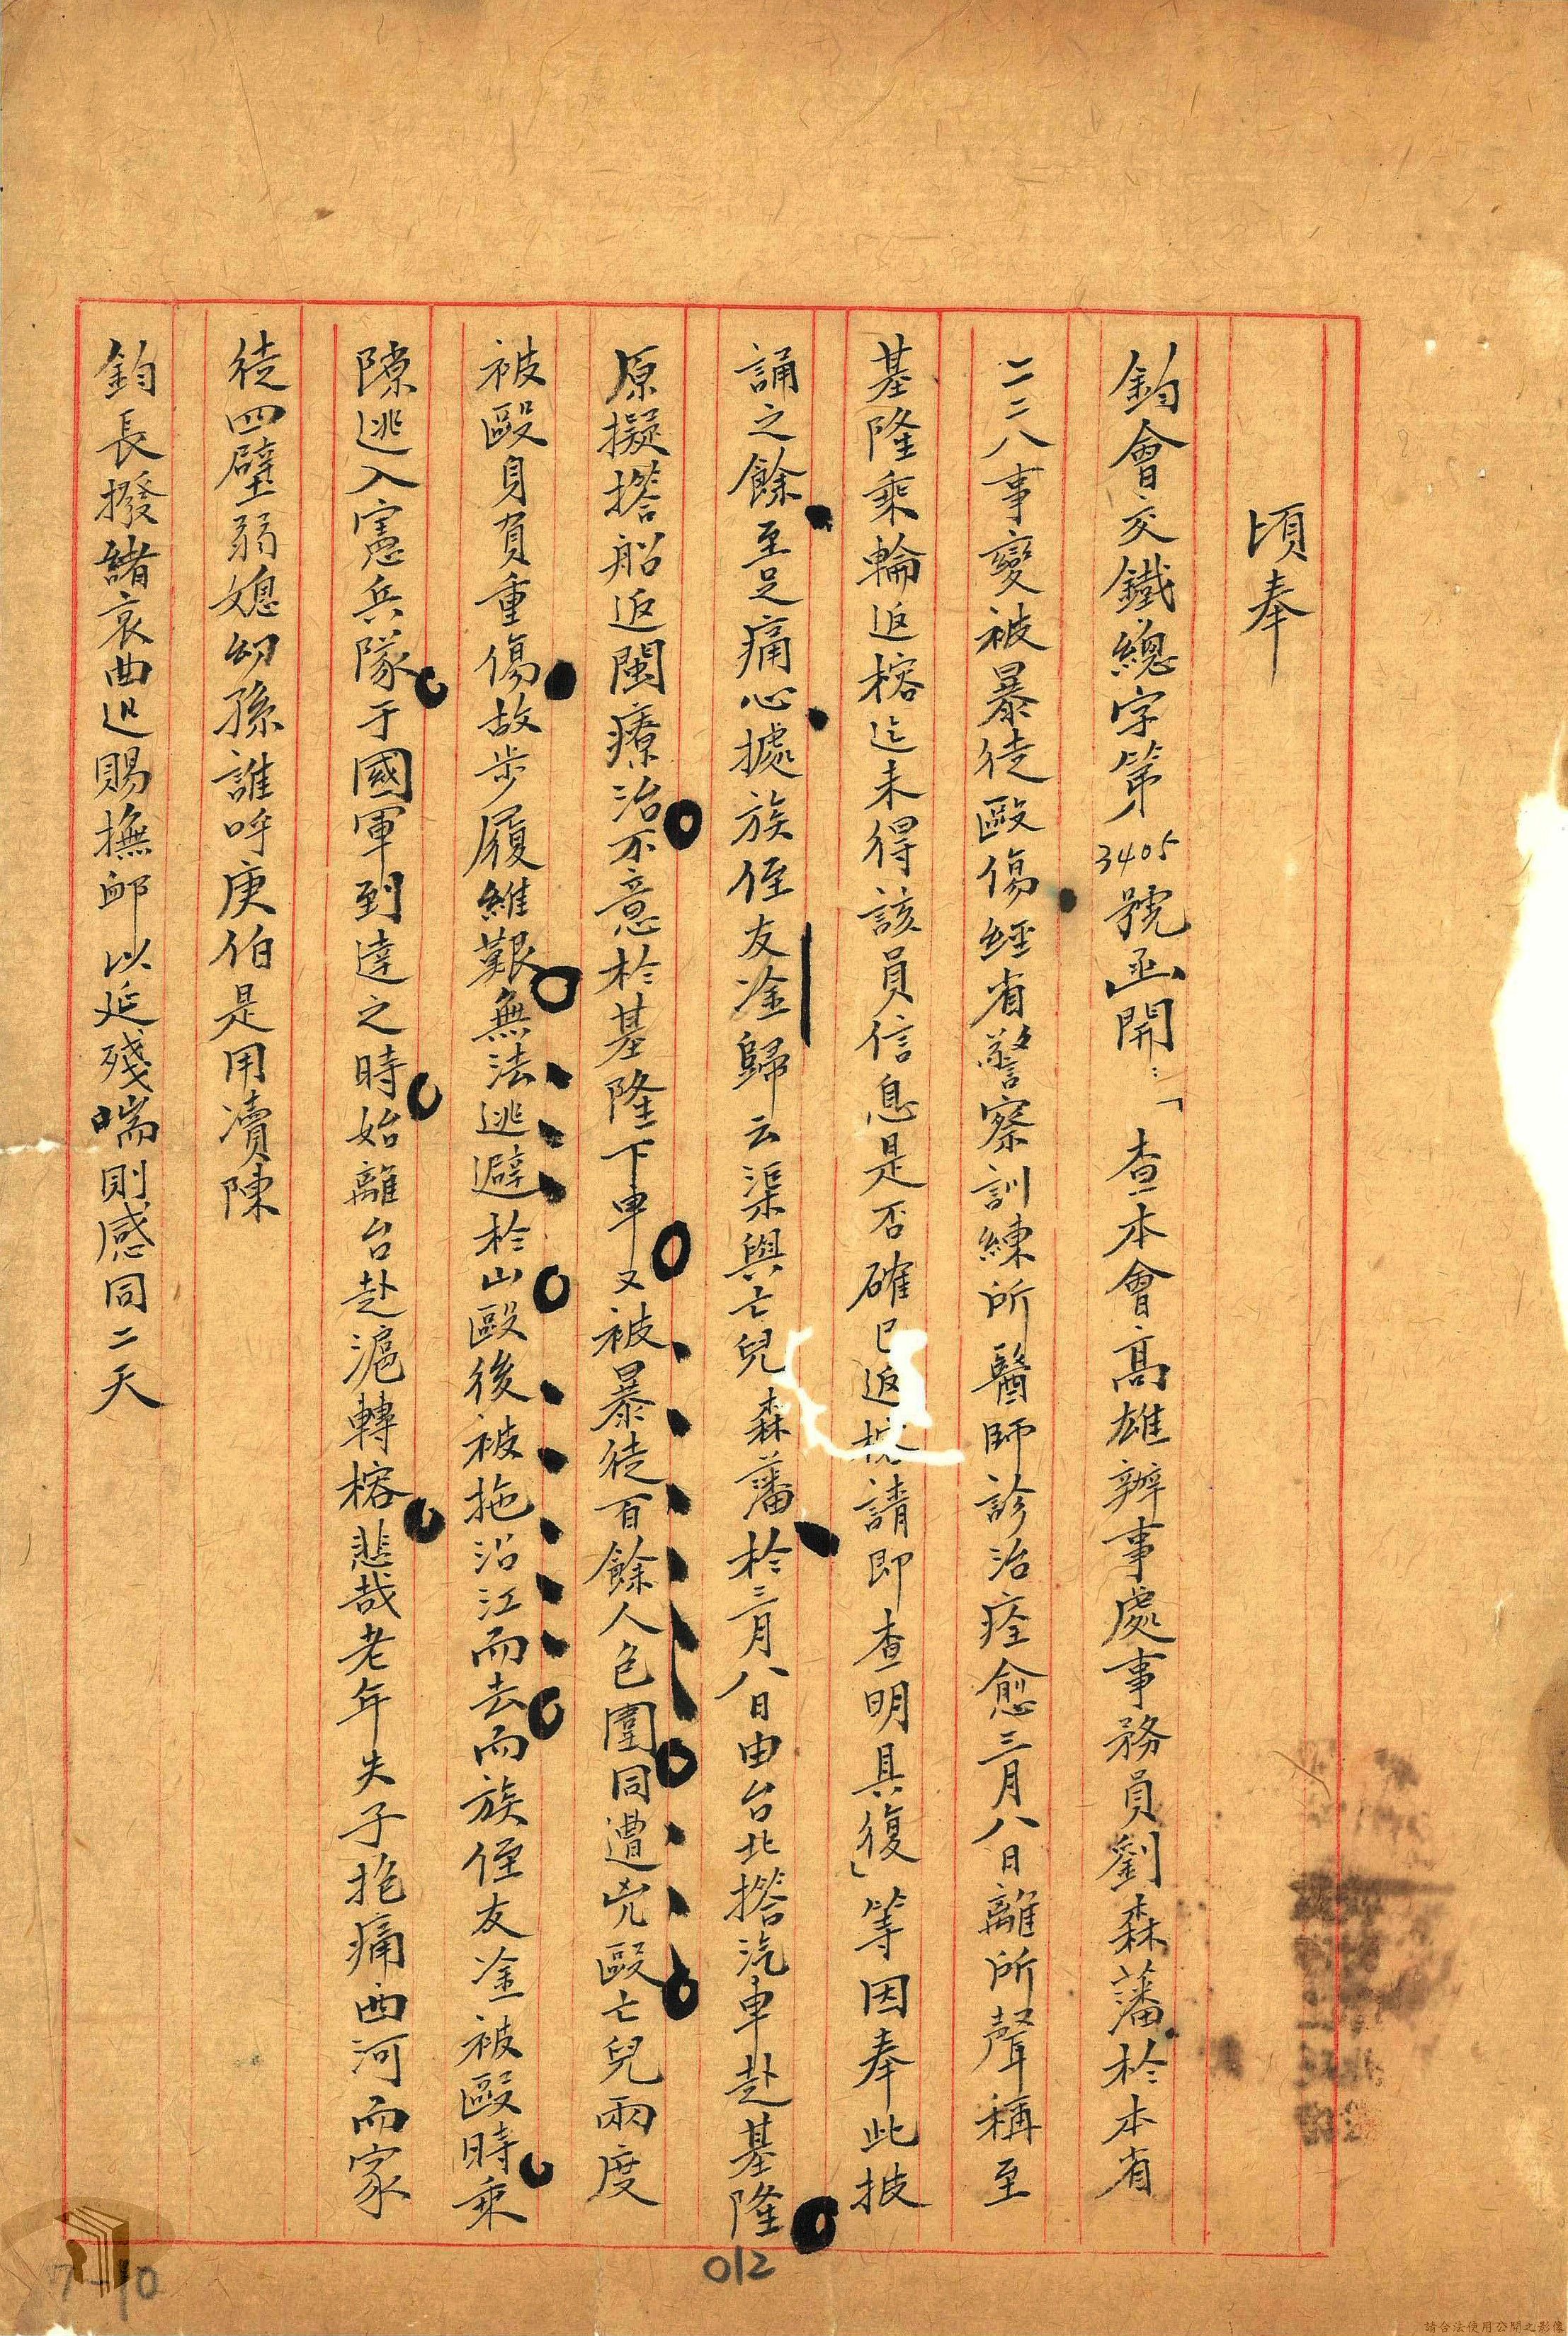 頃奉
鈞會交鐵總字第3405號函開:「查本會高雄辦事處事務員劉森藩於本省
二二八事變被暴徒毆傷經省警察訓練所醫師診治痊愈三月八日離所聲稱至
基隆乘輪返榕迄未得該員信息是否確已返榕請即查明具復」等因奉此披
誦之餘至足痛心據族侄友淦歸云渠與亡兒森藩於三月八日由台北搭汽車赴基隆
原擬搭船返閩療治不意於基隆下車又被暴徒百餘人包圍同遭兇毆亡兒兩度
被毆身負重傷故步履維艱無法逃避於山毆後被拖沿江而去而族侄友淦被毆時乘
隙逃入憲兵隊于國軍到達之時始離台赴滬轉榕悲哉老年失子抱痛西河而家
徒四壁弱媳幼孫誰呼庚伯是用瀆陳
鈞長撥緒哀曲迅賜撫卹以延殘喘則感同二天
012
7-10
請合法使用公開之影像